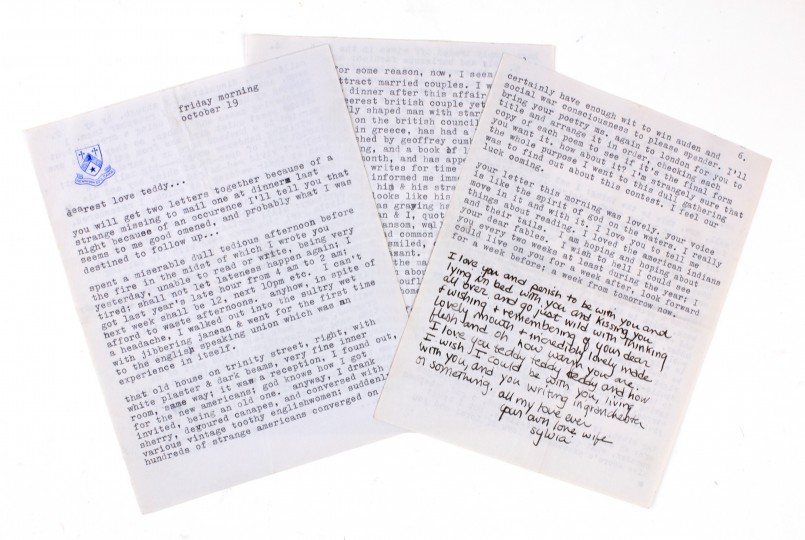 friday morning
october 19
dearest love teddy...
you will get two letters together because of a
strange missing to mail one at dinner last
night because of an occurence I'll tell you that
seems to me good omened, and probably what I was
destined to follow up...
spent a miserable dull tedious afternoon before
the fire in the midst of which I wrote you
yesterday, unable to read or write, being very
tired: shall not let lateness happen again: I
got last year's late hour from 4 am to 2 am;
next week shall be 12, next 10pm etc. I can't
afford to waste afternoons. anyhow, in spite of
a headache, I walked out into the sultry wet
with jibbering janeen & went for the first time
to the english speaking union which was an
experience in itself.
that old house on trinity street, right, with
white plaster & dark beams, very fine inner
room, same way; it was a reception, I found out,
for the new americans; god knows how I got
invited, being an old one. anyway, I drank
sherry, devoured canapes, and conversed with
various vintage toothy englishwomen; suddenly
hundreds of strange americans converged on
for some reason, now, I seem
attract married couples. I w
dinner after this affair
nerest british couple yet
ly shaped man with star
on the british council
in greece, has had a
shed by geoffrey cumb
ng, and a book of l
month, and has appe
writes for time
informed me imme
him & his stra
looks like his
was graying he
an & I, quot
ansom, wal
d common
smiled,
6.
certainly have enough wit to win auden and
social war consciousness to please spender. I'll
bring your poetry ms. again to london for you to
title and arrange it in order, checking each
copy of each poem to see if it's in the final form
you want it. how about it? I'm strangely sure that
the whole purpose I went to this dull gathering
was to find out about this contest. I feel our
luck coming.
your letter this morning was lovely. your voice
is like the spirit of god on the waters. I really
move in it and with it. I love you to tell me
things about reading. I loved the american indians
and their tails. I am hoping and hoping about
your dear fables. I wish to hell I could see
you every two weeks at least during the year! I
could live on you for a week after, look forward
for a week before; a week from tomorrow now.
I love you and perish to be with you and
lying in bed with you and kissing you
all over and go just wild with thinking
& wishing & remembering of your dear
lovely mouth & incredibly lovely made
flesh and oh how warm you are.
I love you teddy teddy teddy and how
I wish I could be with you, living
with you and you writing in grantchester
or something. all my love ever
your own love wife
sylvia